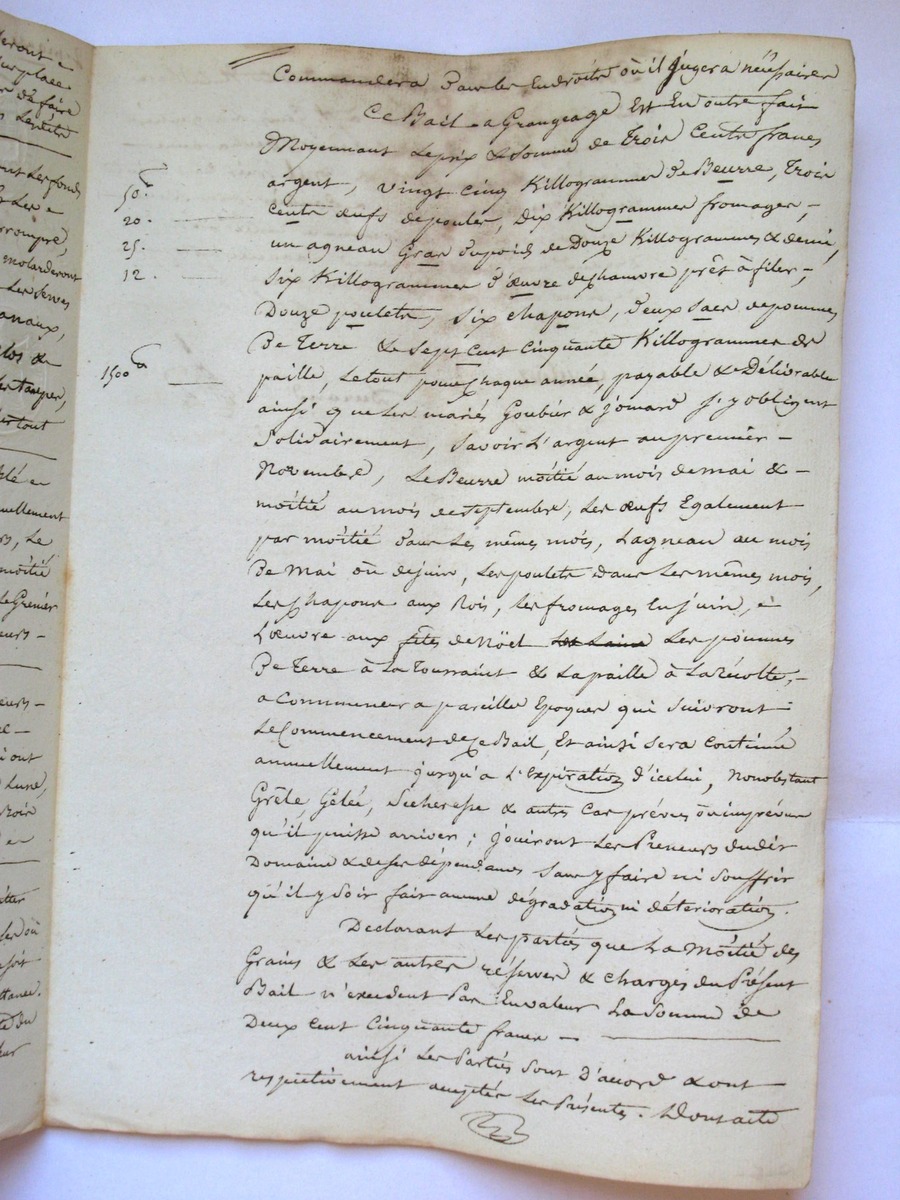 Commandera dans les Endroits où il jugera nécessaires
Ce Bail a Grangeage Est En outre fait
Moyennant Le prix & Somme de Trois Cents francs
argent, vingt cinq Killogrammes de Beurre, Trois
cents œufs de poules, Dix Killogrammes fromages,
un agneau Gras du poids de Douze Killogrammes & demi,
Six Killogrammes d'œuvre de chanvre prêt à filer,
Douze poulets, six chapons, deux sacs de pommes
De Terre & de Sept Cent Cinquante Killogrammes de
paille, Le tout pour chaque année, payable & Délivrable
ainsi que Les mariés Goubier & jomard s'y obligent
Solidairement, Savoir L'argent au premier
Novembre, Le Beurre moitié au mois de mai &
moitié au mois de septembre, Les œufs Egalement
par moitié dans Les mêmes mois, Lagneau au mois
De Mai ou de juin, Les poulets dans Les mêmes mois,
Les chapons aux Rois, Les fromages En juin,
L'œuvre aux fêtes de Nöel Les pommes
De Terre à La Toussaint & La paille à La Récolte,
a Commencer a pareille Epoques qui Suivront
Le Commencement de ce Bail, Et ainsi Sera Continué
annuellement jusqu'a L'Expiration d'icelui, Nonobstant
Grêle Gélée, Sécheresse & autres Cas prévus ou imprévus
qu'il puisse arriver ; jouiront Les Preneurs dudit
Domaine & de ses dépendances Sans y faire ni Souffrir
qu'il y Soit fait aucune dégradation ni détérioration.
Declarant Les parties que La Moitié des
Grains & Les autres réserves & charges du Présent
Bail n'excedent Pas En valeur La Somme de
Deux Cent Cinquante francs
ainsi Les Parties Sont D'accord & ont
respectivement acceptés Les Présentes. Dont acte
50.
20.
25.
12.
1500